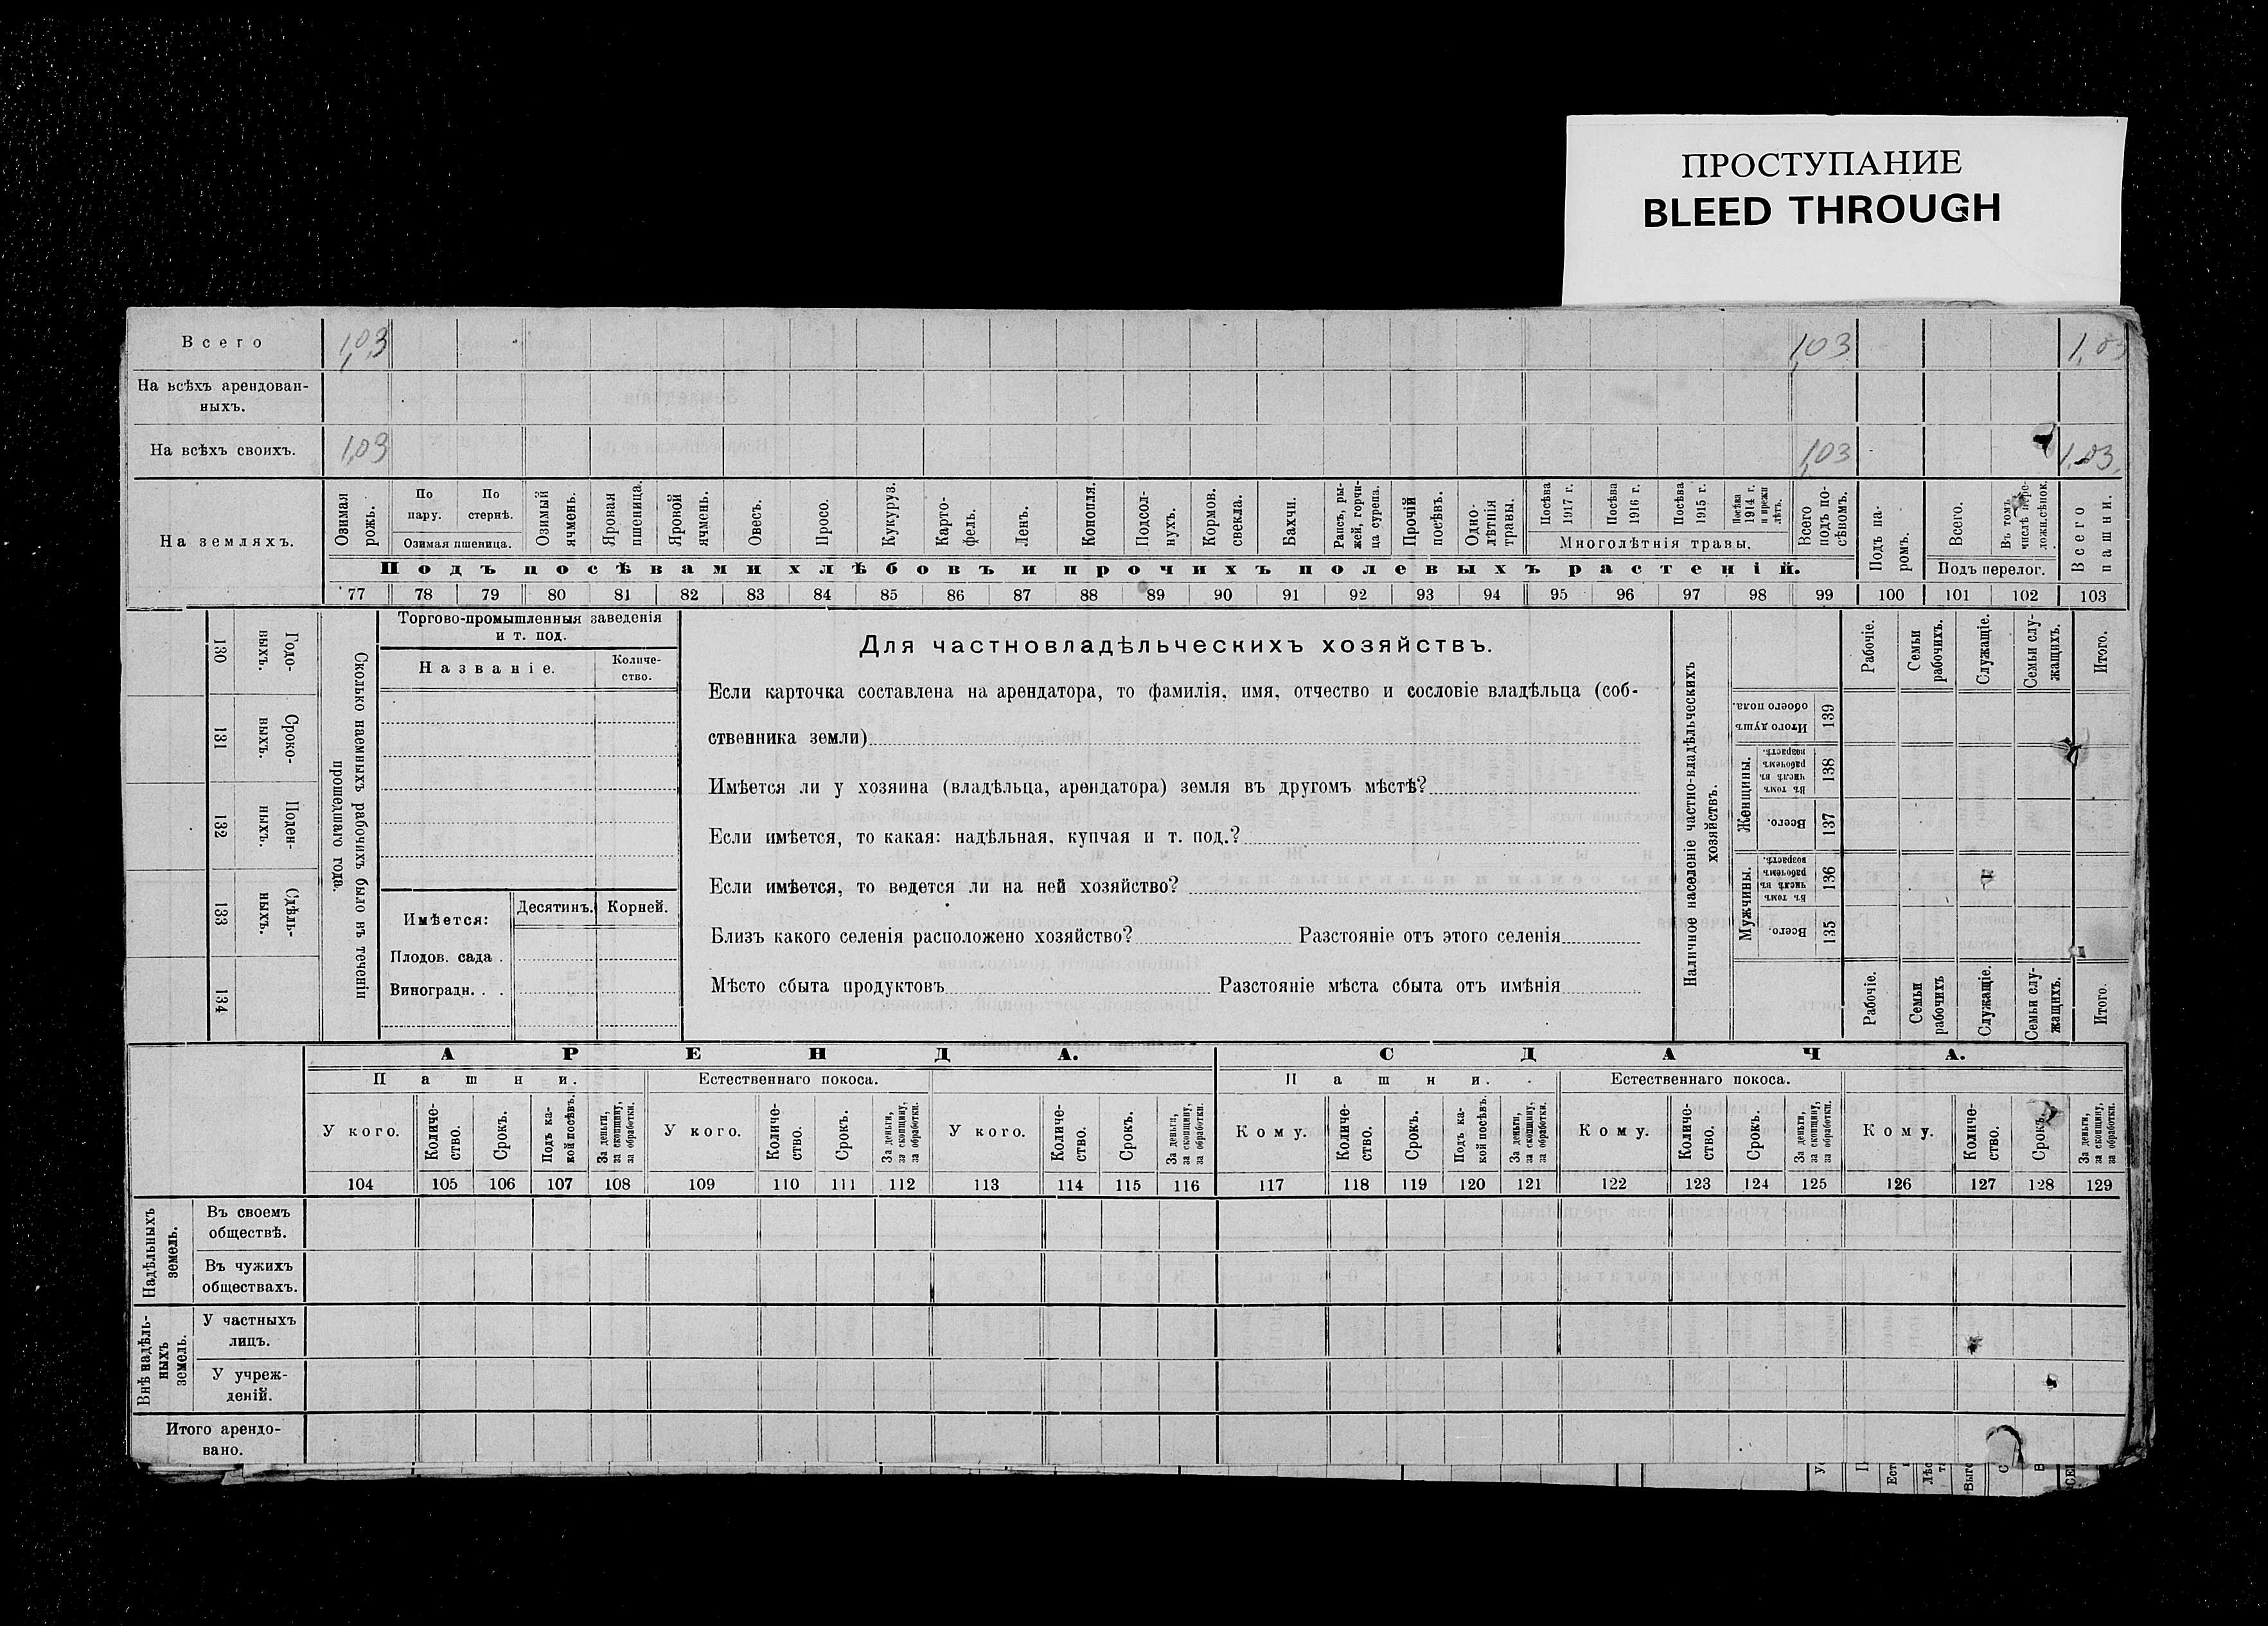 ПРОСТУПАНИЕ
BLEED THROUGH
Всего 1,03 1,03 1,03
На всѣхъ арендован-
ныхъ.
На всѣхъ своихъ. 1,03 1,03 1,03
На земляхъ.
Озимая рожь.
По пару.
По стернѣ.
Озимая пшеница.
Озимый ячмень.
Яровая пшеница.
Яровой ячмень.
Овесъ.
Просо.
Кукуруз.
Карто-
фель.
Ленъ.
Конопля.
Подсол-
нухъ.
Кормов. свекла.
Бахчи.
Рапсъ, ры-
жей, горчи-
ца сурепа.
Прочій посѣвъ.
Одно-
лѣтнія травы.
Посѣва 1917 г.
Посѣва 1916 г.
Посѣва 1915 г.
Посѣва 1914 г. и прежн лѣтъ.
Многолѣтнія травы.
Всего подъ по-
сѣвомъ.
Подъ па-
ромъ.
Всего.
Въ томъ числѣ пере-
ложн.сѣнок.
Подъ перелог.
Всего пашни.
Подъ посѣвами хлѣбовъ и прочихъ полевыхъ растеній.
77 78 79 80 81 82 83 84 85 86 87 88 89 90 91 92 93 94 95 96 97 98 99 100 101 102 103
130 Годо-
выхъ.
131 Сроко-
ныхъ.
132 Поден-
ныхъ.
133 Сдѣль-
ныхъ.
134
Сколько наемныхъ рабочихъ было въ теченіи
прошедшаго года.
Торгово-промышленныя заведенія
и т. под.
Названіе.
Количе-
ство.
Имѣется: Десятинъ. Корней.
Плодов. сада .
Виноградн. . .
Для частновладѣльческихъ хозяйствъ.
Если карточка составлена на арендатора, то фамилія, имя, отчество и сословіе владѣльца (соб-
ственника земли)
Имѣется ли у хозяина (владѣльца, арендатора) земля въ другомъ мѣстѣ?
Если имѣется, то какая: надѣльная, купчая и т. под.?
Если имѣется, то ведется ли на ней хозяйство?
Близъ какого селенія расположено хозяйство? Разстояніе отъ этого селенія
Мѣсто сбыта продуктовъ Разстояніе мѣста сбыта отъ имѣнія
Наличное населеніе частно-владѣльческихъ
хозяйствъ.
Рабочіе.
Семьи рабочихъ.
Служащіе.
Семьи слу-
жащихъ.
Итого.
Итого душъ обоего пола. 139
Женщины.
Въ томъ числѣ въ рабочемъ возрастѣ. 138
Всего. 137
Мужчины.
Въ томъ числѣ въ рабочемъ возрастѣ. 136
Всего. 135
Рабочіе.
Семьи рабочихъ
Служащіе.
Семьи слу-
жащихъ.
Итого.
АРЕНДА. СДАЧА.
Пашни. Естественнаго покоса. Пашни. Естественнаго покоса.
У кого.
Количе-
ство.
Срокъ.
Подъ ка-
кой посѣвъ.
За деньги, за скопщину, за обработки.
У кого.
Количе-
ство.
Срокъ.
За деньги, за скопщину, за обработки.
У кого.
Количе-
ство.
Срокъ.
За деньги, за скопщину, за обработки.
Кому.
Количе-
ство.
Срокъ.
Подъ ка-
кой посѣвъ.
За деньги, за скопщину, за обработки.
Кому.
Количе-
ство.
Срокъ.
За деньги, за скопщину, за обработки.
Кому.
Количе-
ство.
Срокъ.
За деньги, за скопщину, за обработки.
104 105 106 107 108 109 110 111 112 113 114 115 116 117 118 119 120 121 122 123 124 125 126 127 128 129
Надѣльныхъ
земель.
Въ своемъ
обществѣ.
Въ чужихъ
обществахъ.
Внѣ надѣль-
ныхъ
земель.
У частныхъ
лицъ.
У учреж-
деній.
Итого арендо-
вано.